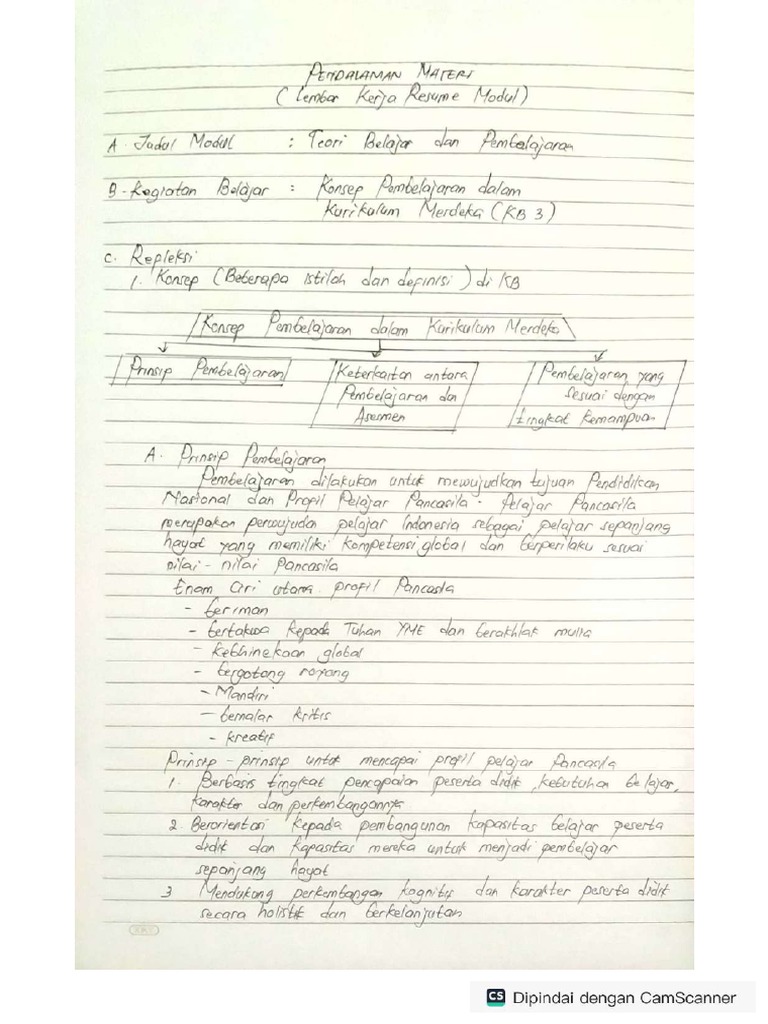 PENDALAMAN MATERI
(Lembar Kerja Resume Modul)
A. Judul Modul : Teori Belajar dan Pembelajaran
B. Kegiatan Belajar : Konsep Pembelajaran dalam
Kurikulum Merdeka (KB 3)
C. Repleksi
1. Konsep (Beberapa istilah dan definisi) di KB
Konsep Pembelajaran dalam Kurikulum Merdeka
Prinsip Pembelajaran
Keterkaitan antara
Pembelajaran dan
Asesmen
Pembelajaran yang
sesuai dengan
tingkat Kemampuan
A. Prinsip Pembelajaran
Pembelajaran dilakukan untuk mewujudkan tujuan Pendidikan
Nasional dan Profil Pelajar Pancasila. Pelajar Pancasila
merupakan perwujudan pelajar Indonesia sebagai pelajar sepanjang
hayat yang memiliki kompetensi global dan berperilaku sesuai
nilai-nilai Pancasila
Enam Ciri utama profil Pancasila
- beriman
- bertakwa kepada Tuhan YME dan berakhlak mulia
- kebhinekaan global
- bergotong royong
- Mandiri
- bernalar kritis
- kreatif
Prinsip-prinsip untuk mencapai profil pelajar Pancasila
1. Berbasis tingkat pencapaian peserta didik, kebutuhan belajar,
karakter dan perkembangannya
2. Berorientasi kepada pembangunan kapasitas belajar peserta
didik dan kapasitas mereka untuk menjadi pembelajar
sepanjang hayat
3 Mendukung perkembangan kognitif dan karakter peserta didik
secara holistik dan berkelanjutan
CS Dipindai dengan CamScanner